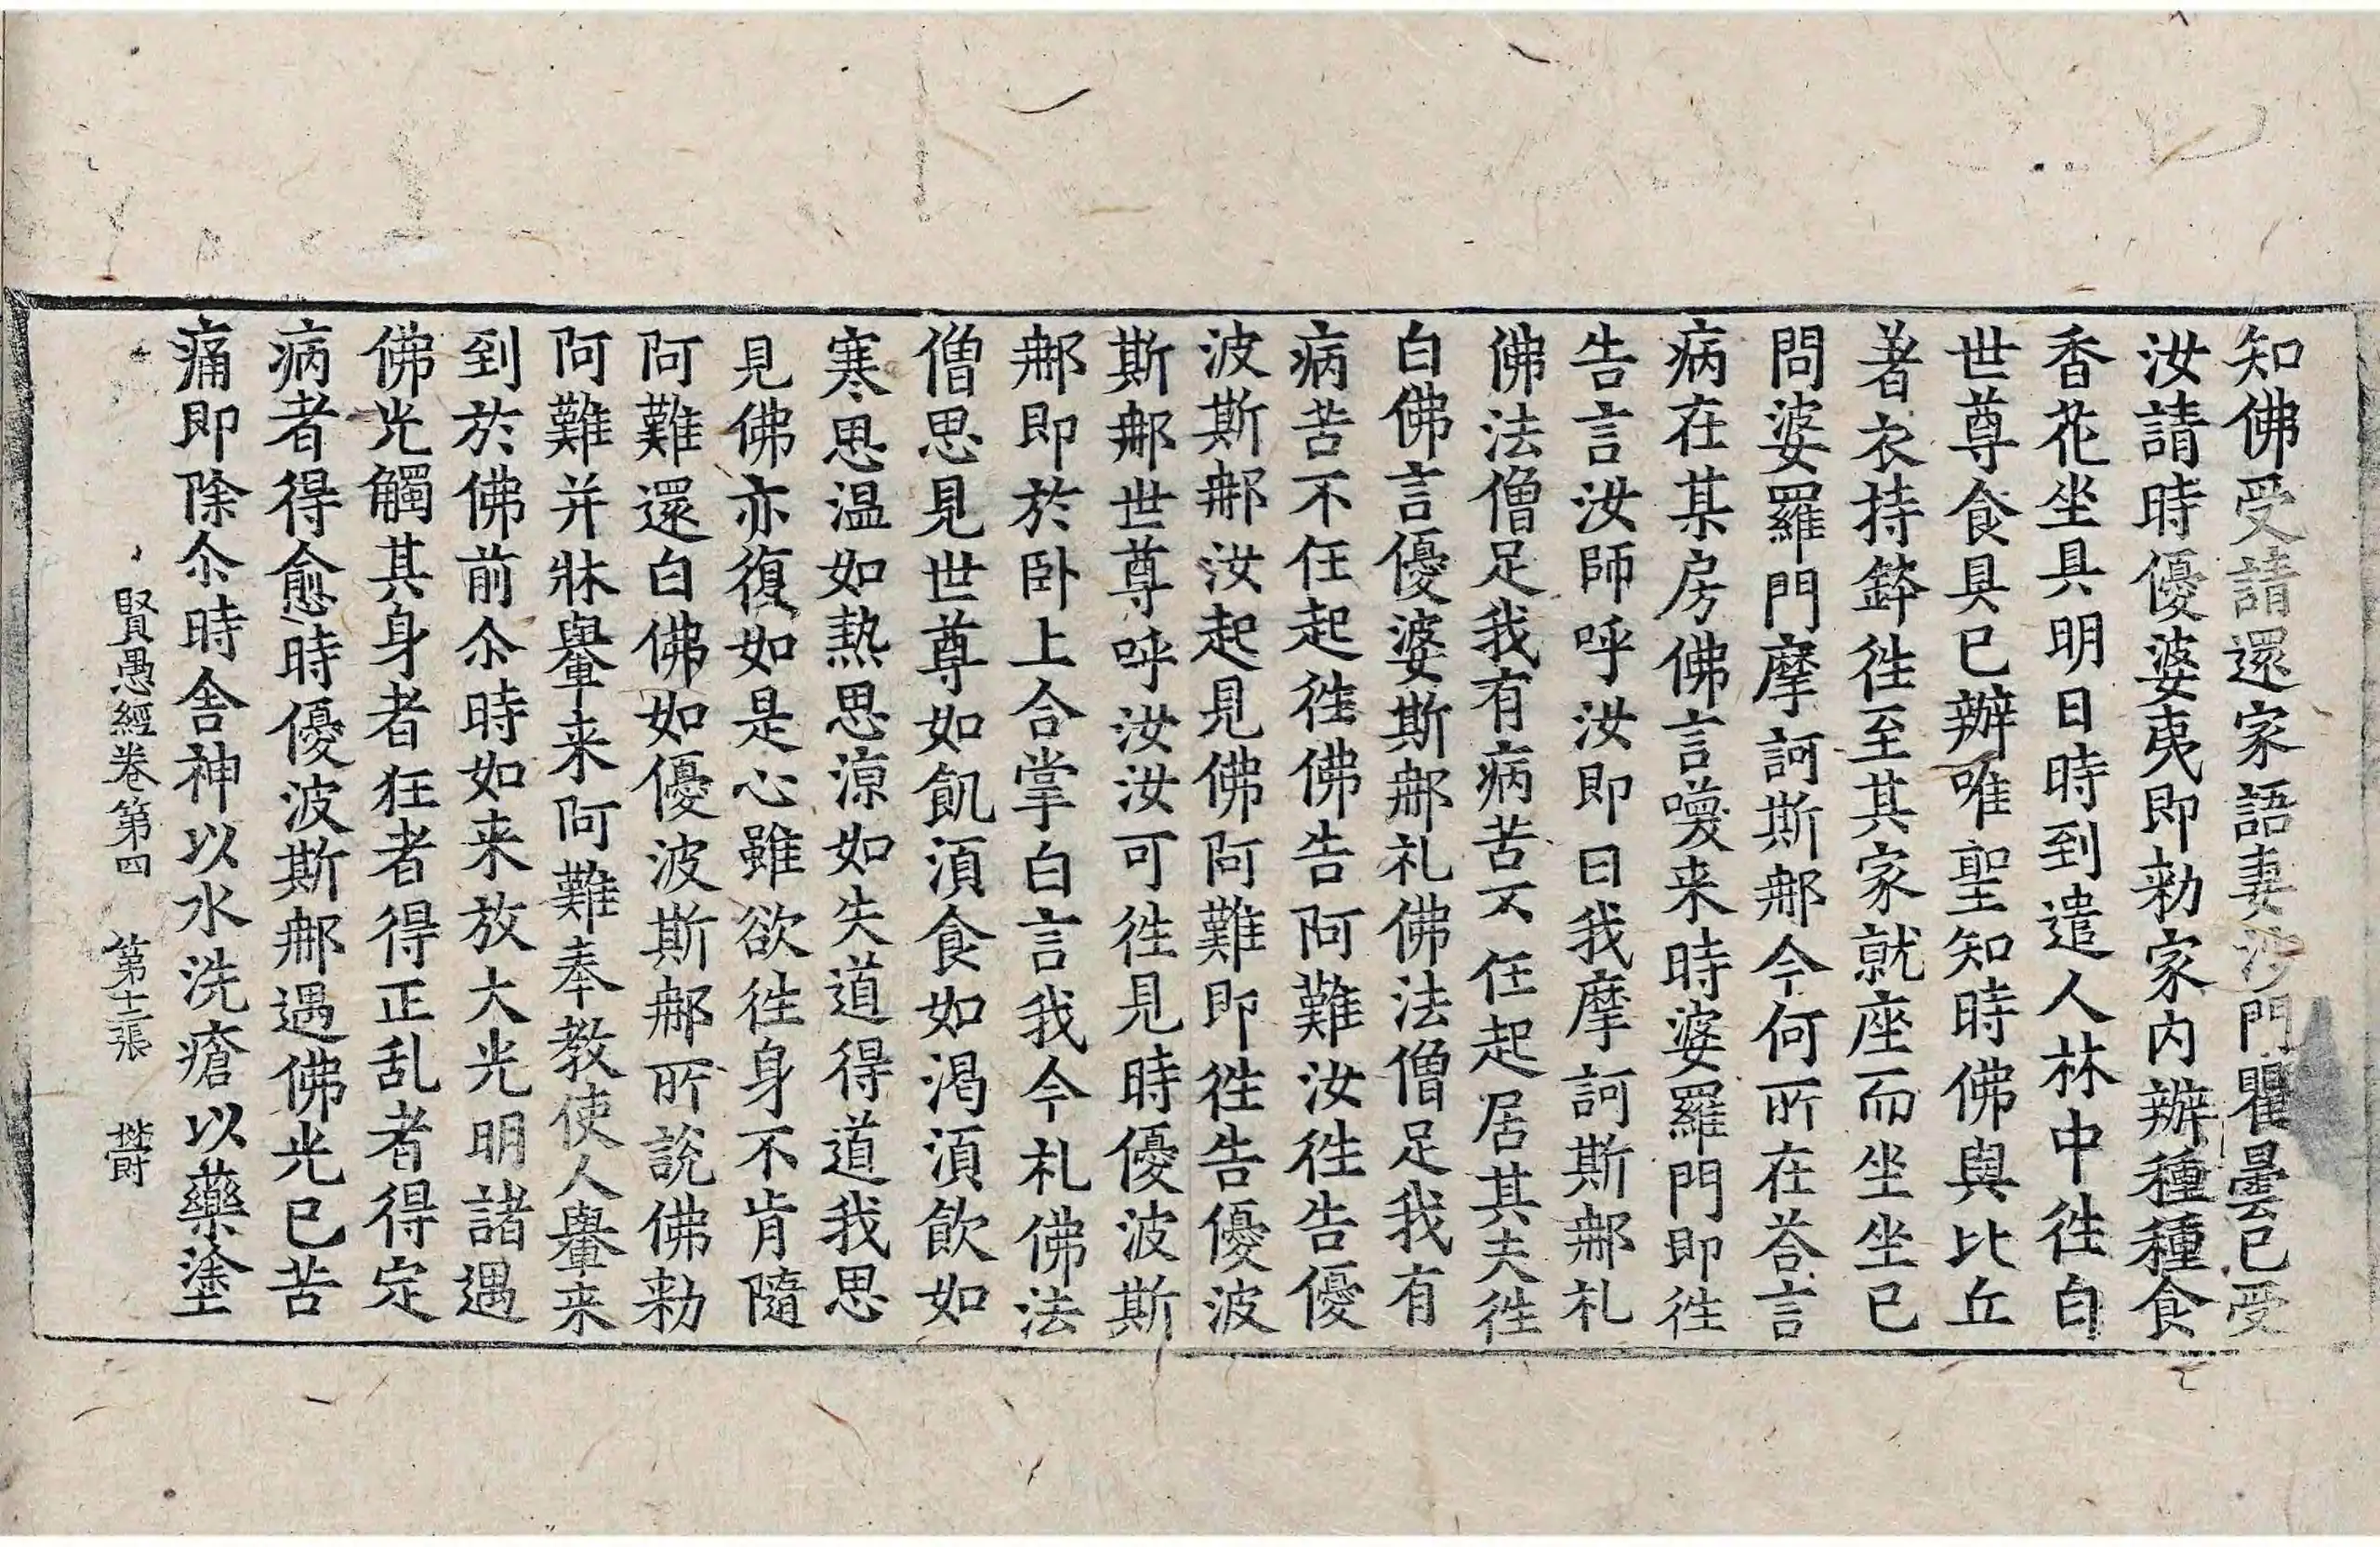 知佛受請還家語妻沙門瞿曇已受
汝請時優婆夷即勑家内辦種種食
香花坐具明日時到遣人林中徃白
世尊食具已辦唯聖知時佛與比丘
著衣持鉢徃至其家就座而坐坐已
問婆羅門摩訶斯𨚗今何所在荅言
病在某房佛言喚来時婆羅門即徃
告言汝師呼汝即曰我摩訶斯𨚗礼
佛法僧足我有病苦不任起居其夫徃
白佛言優婆斯𨚗礼佛法僧足我有
病苦不任起徃佛告阿難汝徃告優
波斯𨚗汝起見佛阿難即徃告優波
斯𨚗世尊呼汝汝可徃見時優波斯
𨚗即於卧上合掌白言我今礼佛法
僧思見世尊如飢湏食如渴湏飲如
寒思温如熱思涼如失道得道我思
見佛亦復如是心雖欲徃身不肯隨
阿難還白佛如優波斯𨚗所說佛勑
阿難并牀轝来阿難奉教使人轝来
到於佛前尒時如来放大光明諸遇
佛光觸其身者狂者得正乱者得定
病者得愈時優波斯𨚗遇佛光已苦
痛即除尒時舍神以水洗瘡以藥塗
賢愚經卷第四　第十二張　欝